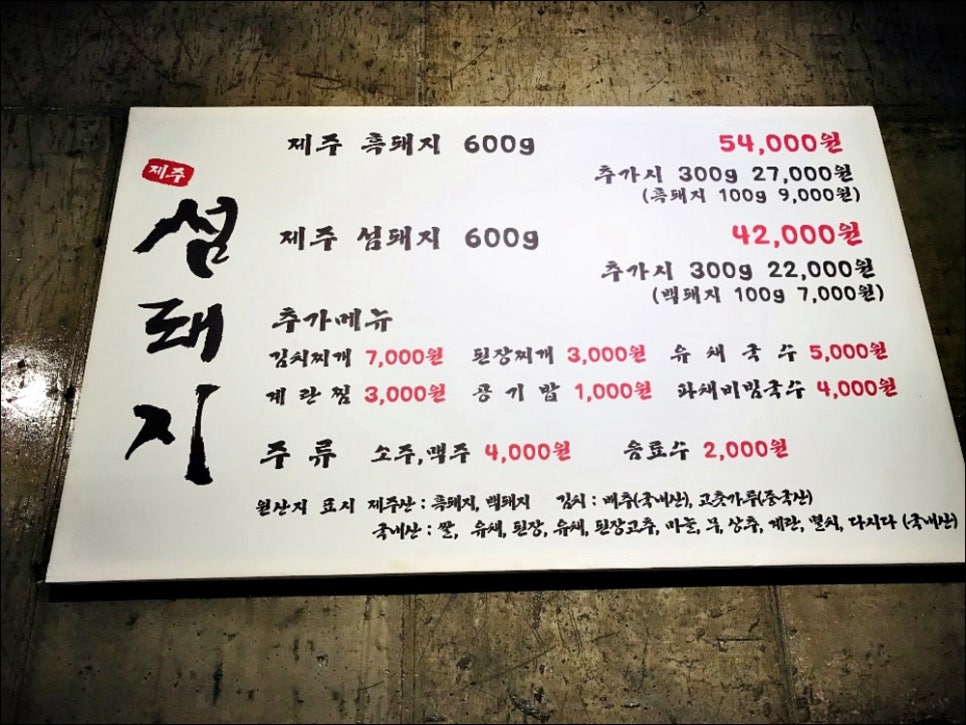 제주
섬돼지
제주 흑돼지 600g 54,000원
추가시 300g 27,000원
(흑돼지 100g 9,000원)
제주 섬돼지 600g 42,000원
추가시 300g 22,000원
(백돼지 100g 7,000원)
추가메뉴
김치찌개 7,000원 된장찌개 3,000원 유채국수 5,000원
계란찜 3,000원 공기밥 1,000원 파채비빔국수 4,000원
주류 소주,맥주 4,000원 음료수 2,000원
원산지 표시 제주산 : 흑돼지, 백돼지 김치 : 배추(국내산), 고춧가루(중국산)
국내산 : 쌀, 유채, 된장, 유채, 된장고추, 마늘, 무, 상추, 계란, 멸치, 다시다 (국내산)